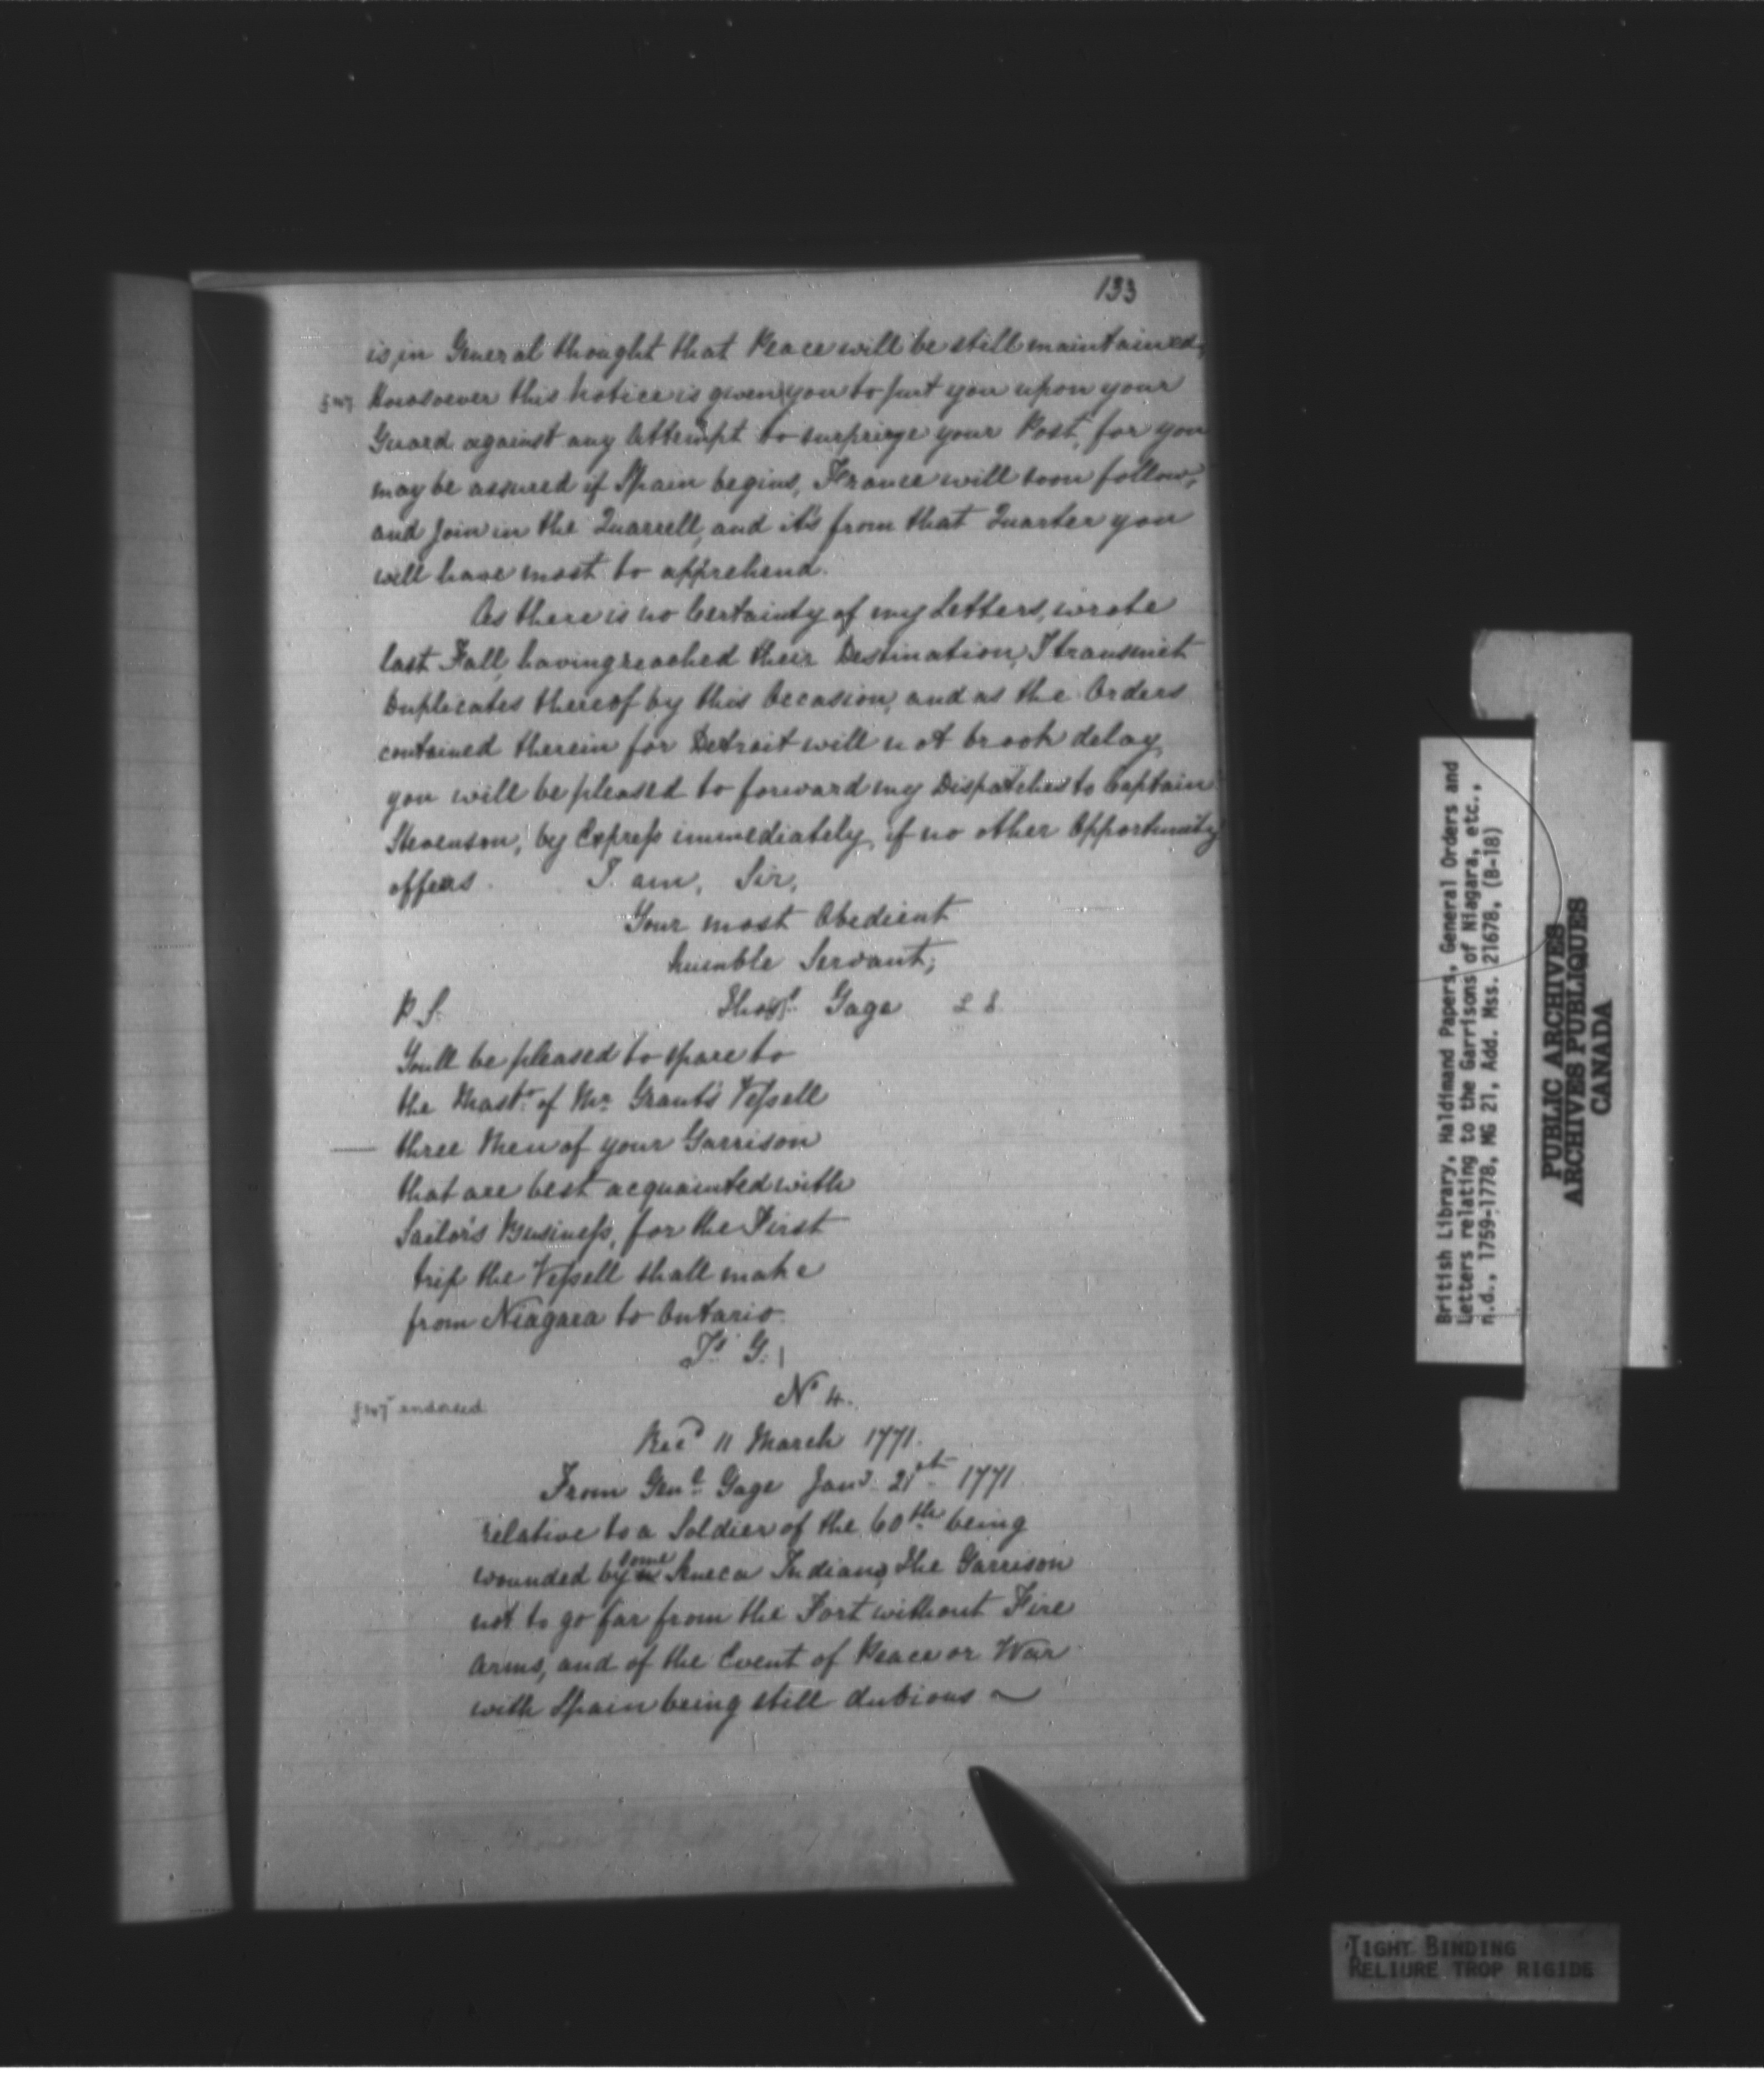 133
is, in General thought that Peace will be still maintained,
Howsoever this Notice is given you to put you upon your
Guard against any Attempt to surprize your Post, for you
may be assured if Spain begins, France will soon follow,
and join in the Quarrell, and it's from that Quarter you
will have most to apprehend.
As there is no Certainty of my Letters, wrote
last Fall, having reached their Destination, I transmit
Duplicates thereof by this Occasion, and as the Orders
contained therein for Detroit will not brook delay,
you will be pleased to forward my Dispatches to Captain
Stevenson, by Express immediately, if no other Opportunity
offers. I am, Sir,
Your most Obedient
humble Servant,
P.S. Thos. Gage
Youll be pleased to spare to
the Mastr. of Mr. Grant's Vessell
three Men of your Garrison
that are best acquainted with
Sailor's Business, for the First
trip the Vessell shall make
from Niagara to Ontario.
Ts. G.
endorsed
No 4.
Recd 11 March 1771.
From Genl. Gage Jany. 21st. 1771
relative to a Soldier of the 60th. being
wounded by some Seneca Indians, The Garrison
not to go far from the Fort without Fire
Arms, and of the Event of Peace or War
with Spain being still dubious ~
British Library, Haldimand Papers, General Orders and
Letters relating to the Garrisons of Niagara, etc.,
n.d., 1759-1778, MG 21, Add. Mss. 21678, (B-18)
PUBLIC ARCHIVES
ARCHIVES PUBLIQUES
CANADA
TIGHT BINDING
RELIURE TROP RIGIDE